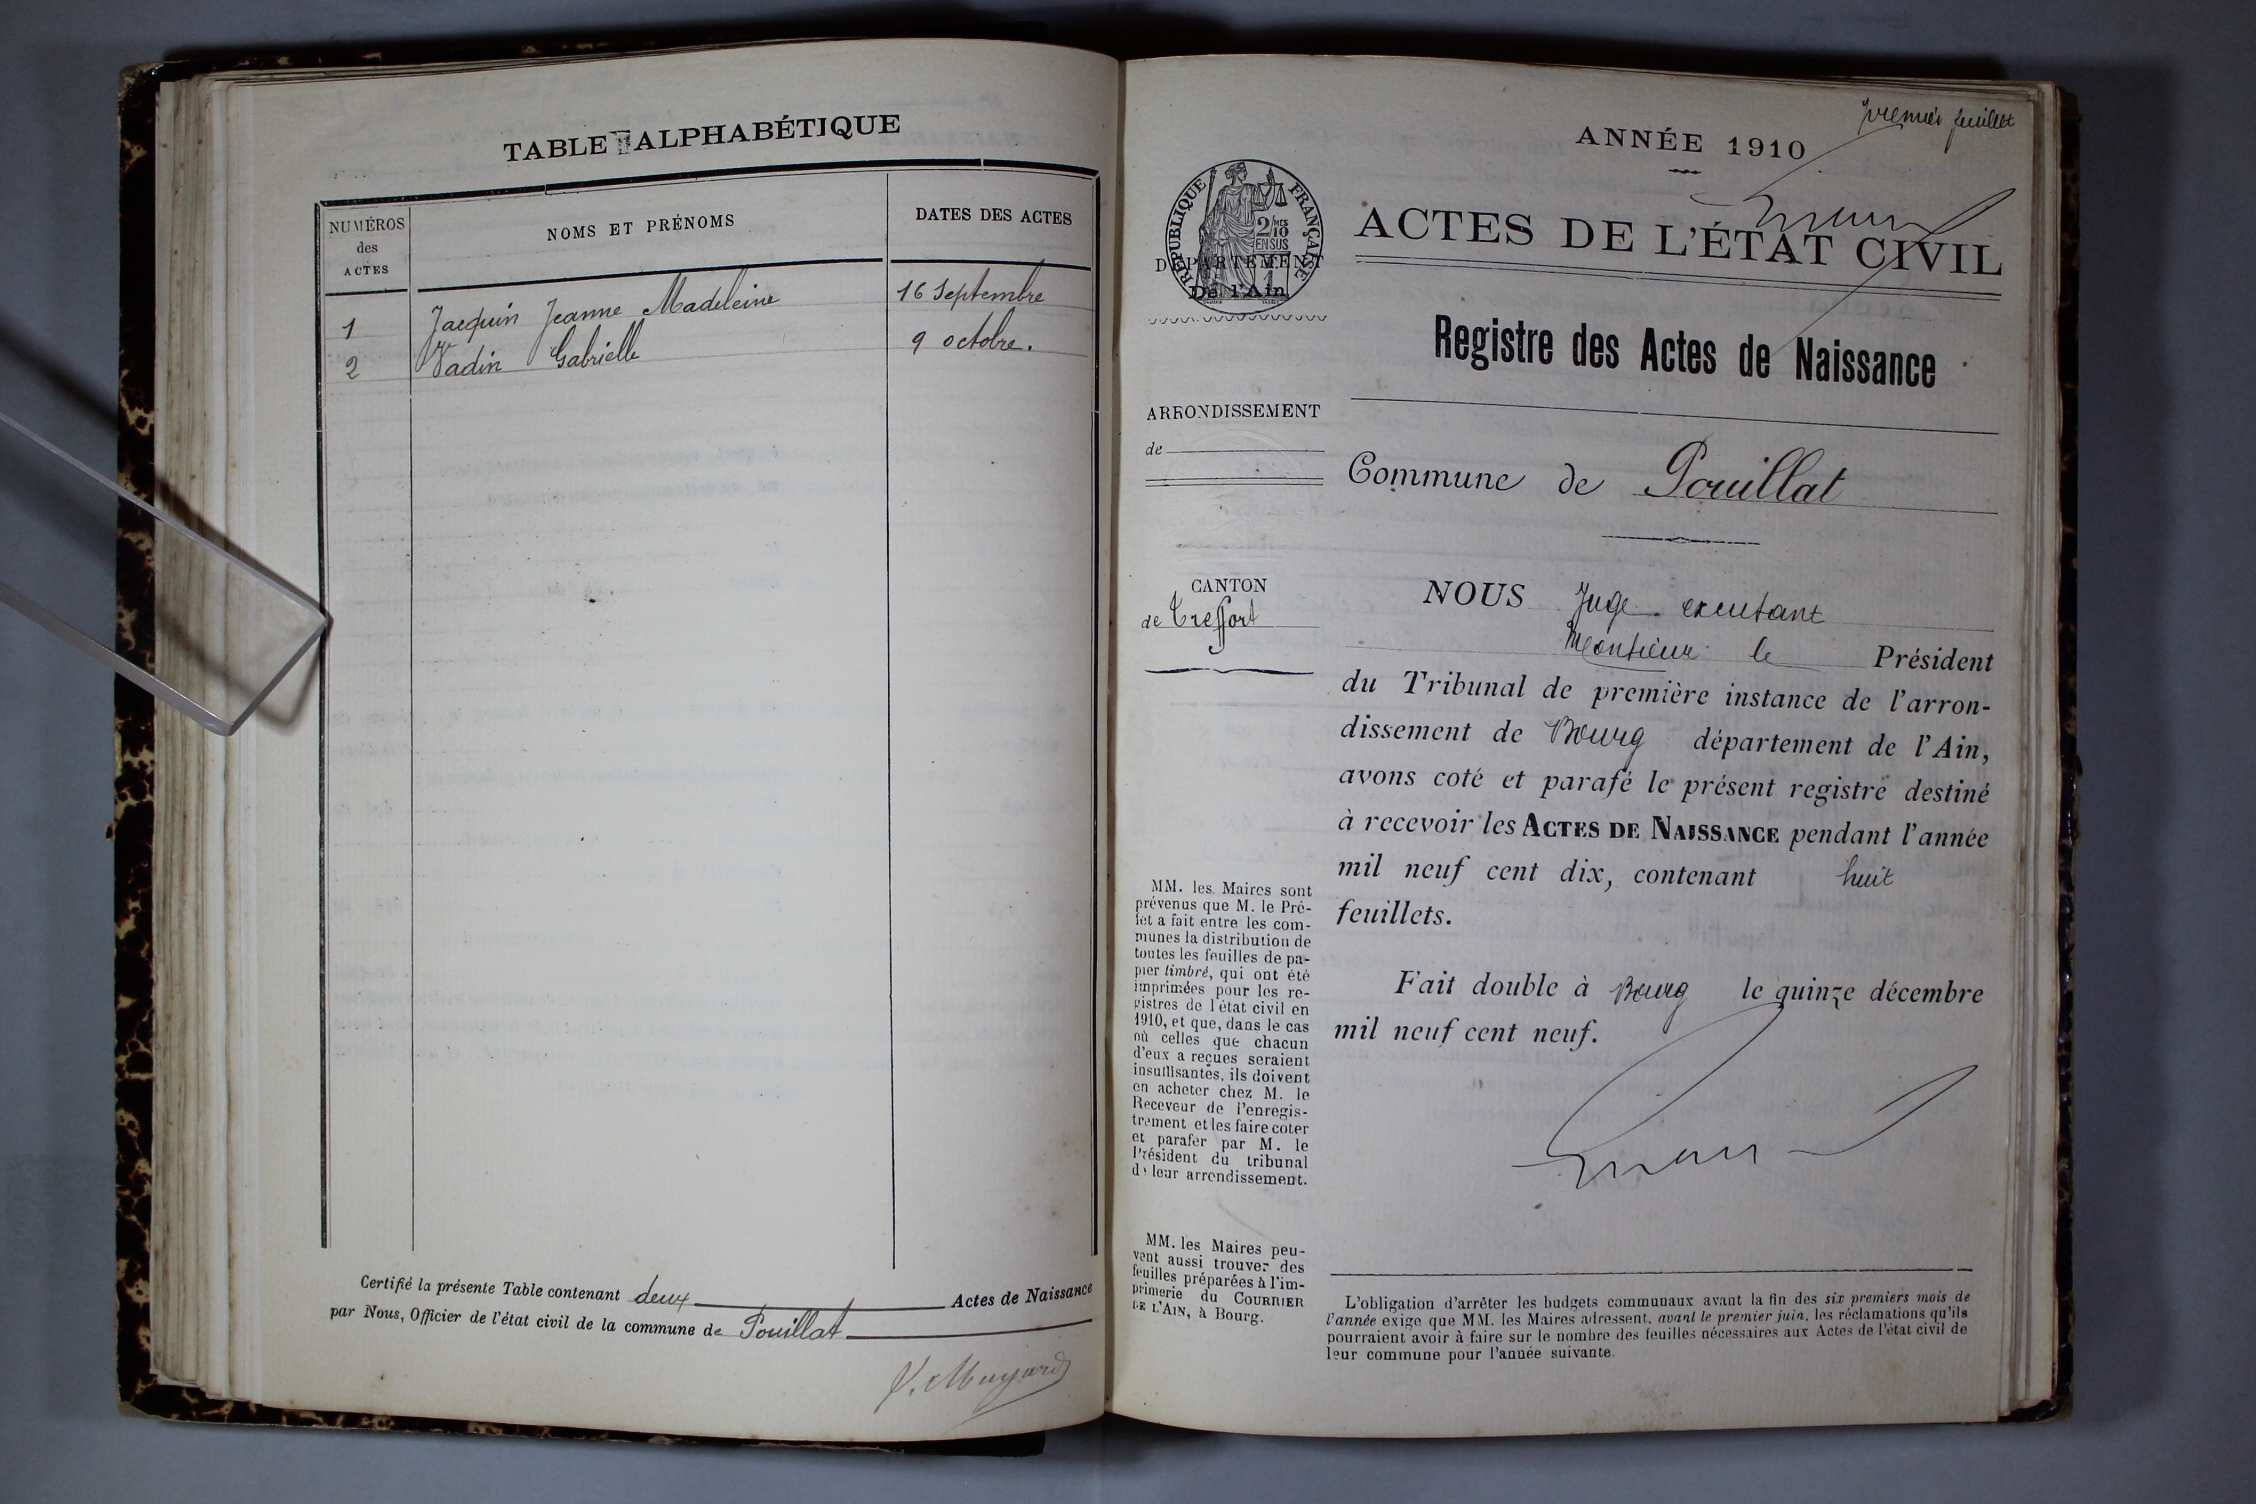 TABLE ALPHABÉTIQUE
NUMÉROS des ACTES
NOMS ET PRÉNOMS
DATES DES ACTES
1 Jacquin Jeanne Madeleine 16 Septembre
2 Vadin Gabrielle 9 octobre.
Certifié la présente Table contenant deux Actes de Naissance
par Nous, Officier de l'état civil de la commune de Pouillat
premier feuillet
ANNÉE 1910
RÉPUBLIQUE FRANÇAISE
2/10 EN SUS
DÉPARTEMENT
De l'Ain
ACTES DE L'ÉTAT CIVIL
Registre des Actes de Naissance
ARRONDISSEMENT
de
Commune de Pouillat
CANTON
de Treffort
NOUS Juge
Monsieur le Président
du Tribunal de première instance de l'arron-
dissement de Bourg département de l'Ain,
avons coté et parafé le présent registre destiné
à recevoir les ACTES DE NAISSANCE pendant l'année
mil neuf cent dix, contenant huit
feuillets.
Fait double à Bourg le quinze décembre
mil neuf cent neuf.
MM. les Maires sont
prévenus que M. le Pré-
fet a fait entre les com-
munes la distribution de
toutes les feuilles de pa-
pier timbré, qui ont été
imprimées pour les re-
gistres de l'état civil en
1910, et que, dans le cas
où celles que chacun
d'eux a reçues seraient
insuffisantes, ils doivent
en acheter chez M. le
Receveur de l'enregis-
trement et les faire coter
et parafer par M. le
Président du tribunal
de leur arrondissement.
MM. les Maires peu-
vent aussi trouver des
feuilles préparées à l'im-
primerie du COURRIER
DE L'AIN, à Bourg.
L'obligation d'arrêter les budgets communaux avant la fin des six premiers mois de
l'année exige que MM. les Maires adressent, avant le premier juin, les réclamations qu'ils
pourraient avoir à faire sur le nombre des feuilles nécessaires aux Actes de l'état civil de
leur commune pour l'année suivante.